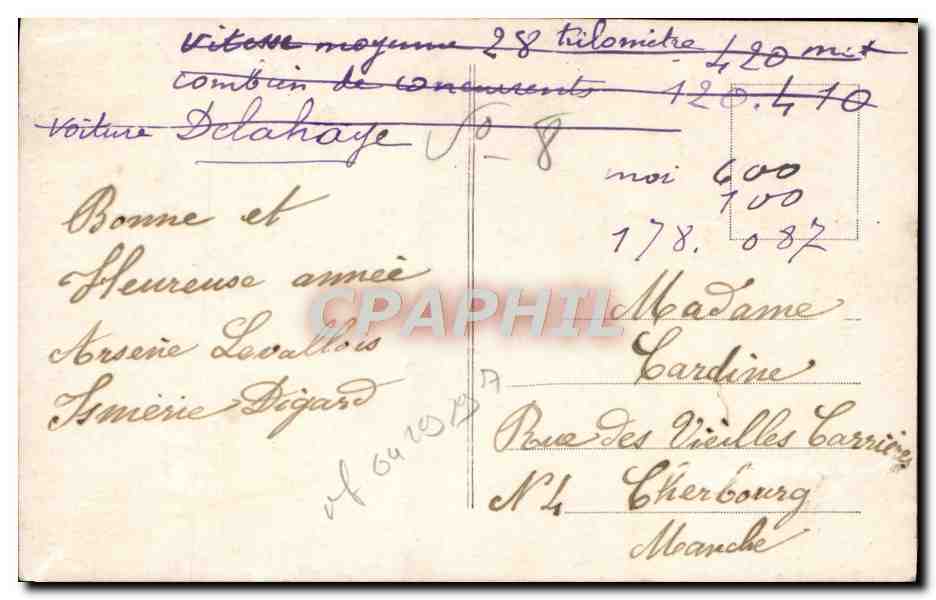 vitesse moyenne 28 kilomètre 420 met
combien de concurrents 120.410
voiture Delahaye
50 - 8
moi 600
100
178. 087
Bonne et
Heureuse année
Arsène Levallois
Ismérie Digard
Madame
Cardine
Rue des Vieilles Carrières
N 4 Cherbourg
Manche
CPAPHIL